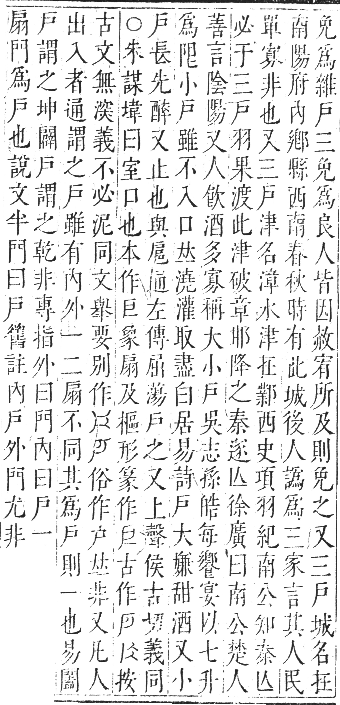 免爲雜戶三免爲良人皆因赦宥所及則免之又三戶城名在
南陽府內鄉縣西南春秋時有此城後人譌爲三家言其人民
單寡非也又三戶津名漳水津在鄴西史項羽紀南公知秦亾
必于三戶羽果渡此津破章邯降之秦遂亾徐廣曰南公楚人
善言陰陽又人飲酒多寡稱大小戶吳志孫皓每饗宴以七升
爲限小戶雖不入口𠀤澆灌取盡白居易詩戶大嫌甜酒又小
戶長先醉又止也與扈通左傳屈蕩戶之又上聲侯古切義同
○朱謀㙔曰室口也本作戶象扇及樞形篆作戶古作戶按
古文無深義不必泥同文舉要別作俗作户𠀤非又凡人
出入者通謂之戶雖有內外一二扇不同其爲戶則一也易闔
戶謂之坤闢戶謂之乾非專指外曰門內曰戶一
扇門爲戶也說文半門曰戶舊註內戶外門尤非